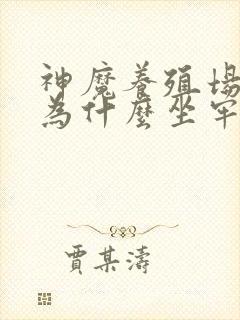 神魔養殖場
為什麼坐牢
賈某濤